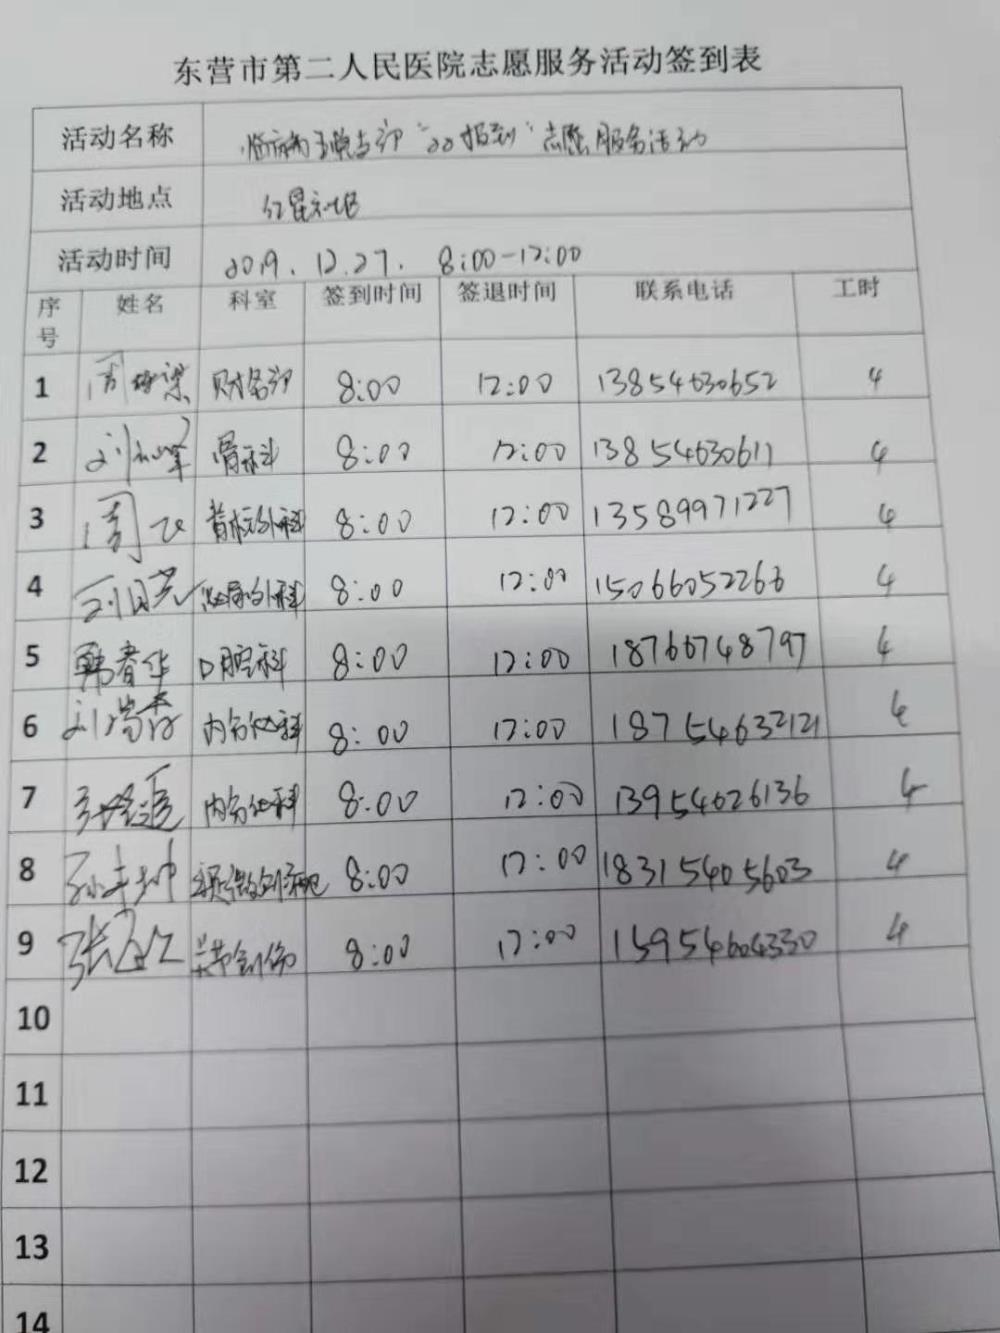 东营市第二人民医院志愿服务活动签到表
活动名称 支部"双报到"志愿服务活动
活动地点 红星社区
活动时间 2019.12.27. 8:00-12:00
序号 姓名 科室 签到时间 签退时间 联系电话 工时
1 财务部 8:00 12:00 13854630652 4
2 骨科 8:00 12:00 13854630611 4
3 周飞 脊柱外科 8:00 12:00 13589971227 4
4 泌尿外科 8:00 12:00 15066052266 4
5 韩春华 口腔科 8:00 12:00 18766748797 4
6 刘瑞森 内分泌科 8:00 12:00 18754632121 4
7 内分泌科 8:00 12:00 13954626136 4
8 8:00 12:00 18315405603 4
9 关节创伤 8:00 12:00 15954604330 4
10
11
12
13
14